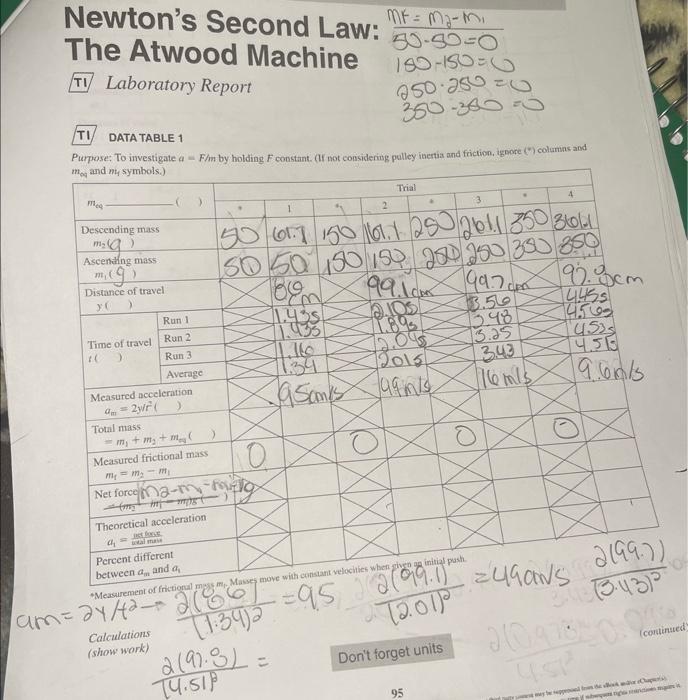 Newton's Second Law:
The Atwood Machine
TI Laboratory Report
Mf = m2-m1
50-50=0
150-150=0
250-250=0
350-350=0
TI DATA TABLE 1
Purpose: To investigate a = F/m by holding F constant. (If not considering pulley inertia and friction, ignore (*) columns and
meq and mf symbols.)
meq ( ) Trial
* 1 * 2 * 3 * 4
Descending mass m2 (g) 50 61.1 150 161.1 250 261.1 350 361.1
Ascending mass m1 (g) 50 50 150 150 250 250 350 350
Distance of travel y ( ) 86 cm 99.1cm 99.7cm 97.8cm
Time of travel t ( )
Run 1 1.43s 2.10s 3.56 4.45s
Run 2 1.43s 1.89s 3.48 4.56s
Run 3 1.16 2.04s 3.25 4.52s
Average 1.34 2.01s 3.43 4.51s
Measured acceleration
am = 2y/t² ( ) 95cm/s 49m/s 16m/s 9.6m/s
Total mass
= m1 + m2 + meq ( )
Measured frictional mass
mf = m2 − m1 0 0 0 0
Net force (m2-m1-mf)g
= (m2 − m1 − mf)g ( )
Theoretical acceleration
at = net force / total mass
Percent different
between am and at
*Measurement of frictional mass mf. Masses move with constant velocities when given an initial push.
am = 2y/t² → 2(86) / (1.34)² = 95 2(99.1) / (2.01)² = 49cm/s 2(99.7) / (3.43)²
Calculations
(show work)
2(97.8) / (4.51)² =
Don't forget units
(continued)
95